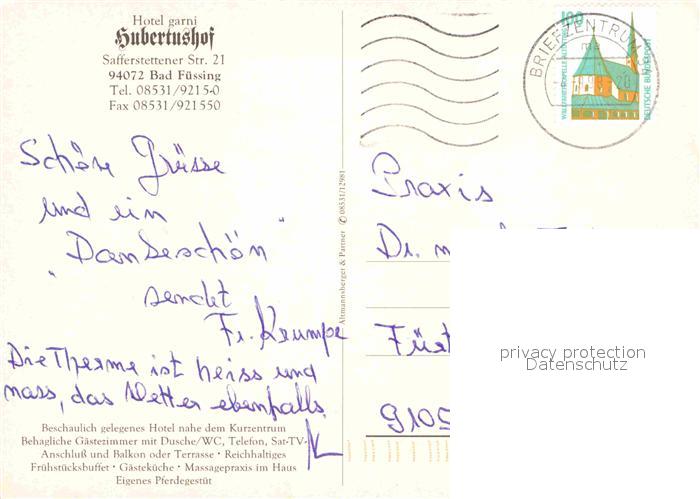 Hotel garni
Hubertushof
Safferstettener Str. 21
94072 Bad Füssing
Tel. 08531/9215-0
Fax 08531/921550
Schöne Grüsse
und ein
"Dankeschön"
sendet
Fr. Krumpe
Die Therme ist heiss und
nass, das Wetter ebenfalls.
Beschaulich gelegenes Hotel nahe dem Kurzentrum
Behagliche Gästezimmer mit Dusche/WC, Telefon, Sat-TV-
Anschluß und Balkon oder Terrasse • Reichhaltiges
Frühstücksbuffet • Gästeküche • Massagepraxis im Haus
Eigenes Pferdegestüt
Altmannsberger & Partner ✆ 08531/12981
BRIEFZENTRUM
100
DEUTSCHE BUNDESPOST
Praxis
Dr. m
Fürt
9105
privacy protection
Datenschutz